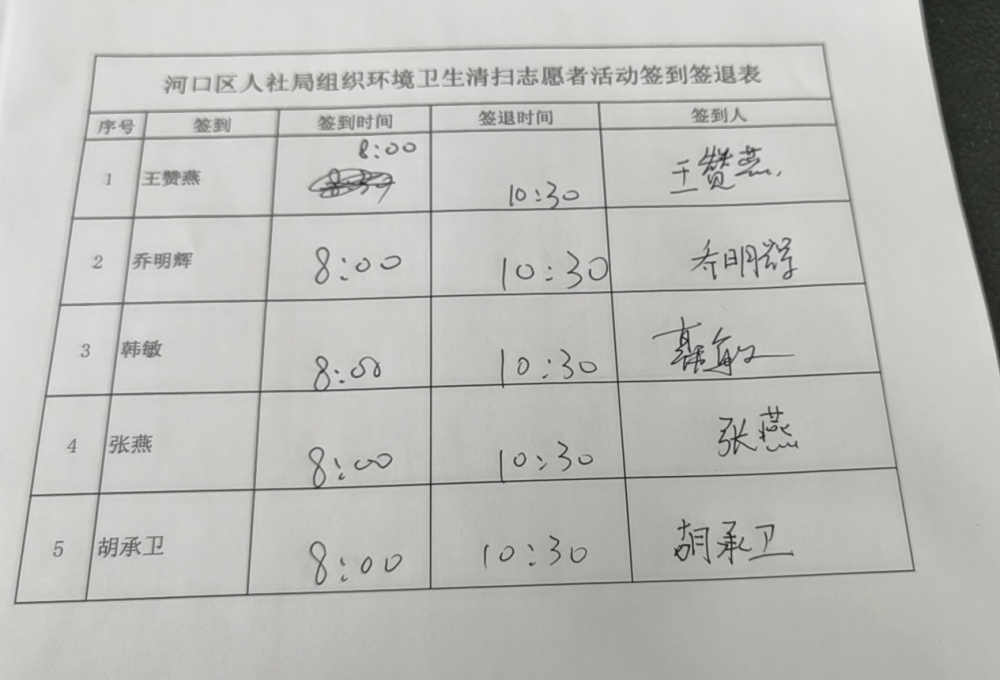 河口区人社局组织环境卫生清扫志愿者活动签到签退表
序号 签到 签到时间 签退时间 签到人
1 王赞燕 8:00 10:30 王赞燕
2 乔明辉 8:00 10:30 乔明辉
3 韩敏 8:00 10:30 韩敏
4 张燕 8:00 10:30 张燕
5 胡承卫 8:00 10:30 胡承卫